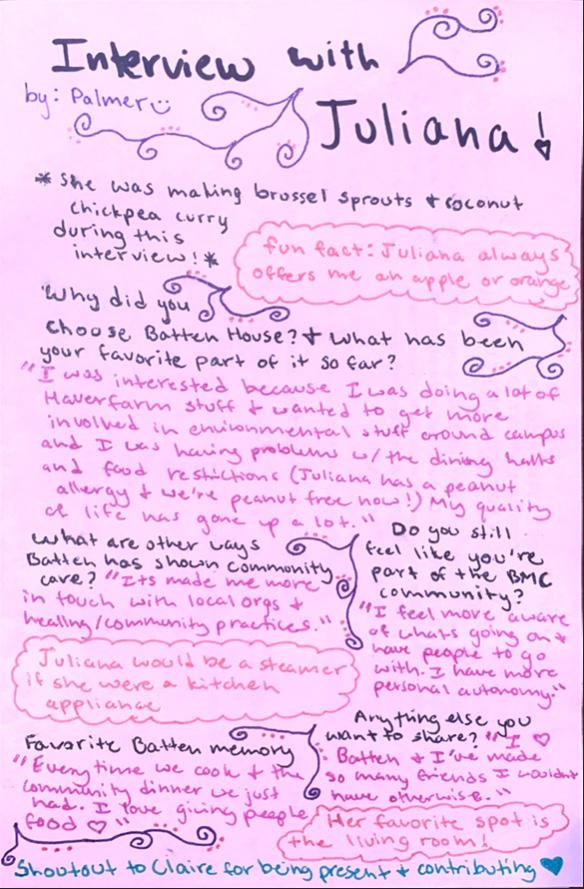 Interview with
by: Palmer
Juliana!
* She was making brussel sprouts + coconut
chickpea curry
during this
interview! *
fun fact: Juliana always
offers me an apple or orange
Why did you
choose Batten House? + What has been
your favorite part of it so far?
"I was interested because I was doing a lot of
Haverfarm stuff + wanted to get more
involved in environmental stuff around campus
and I was having problems w/ the dining halls
and food restictions (Juliana has a peanut
allergy + we're peanut free now!) My quality
of life has gone up a lot."
What are other ways
Batten has shown community
care? "Its made me more
in touch with local orgs +
healing/community practices."
Do you still
feel like you're
part of the BMC
community?
"I feel more aware
of whats going on +
have people to go
with. I have more
personal autonomy"
Juliana would be a steamer
if she were a kitchen
appliance
Favorite Batten memory
"Every time we cook + the
community dinner we just
had. I love giving people
food ♡"
Anything else you
want to share? "I ♡
Batten + I've made
so many friends I wouldnt
have otherwise."
Her favorite spot is
the living room!
Shoutout to Claire for being present + contributing ♥